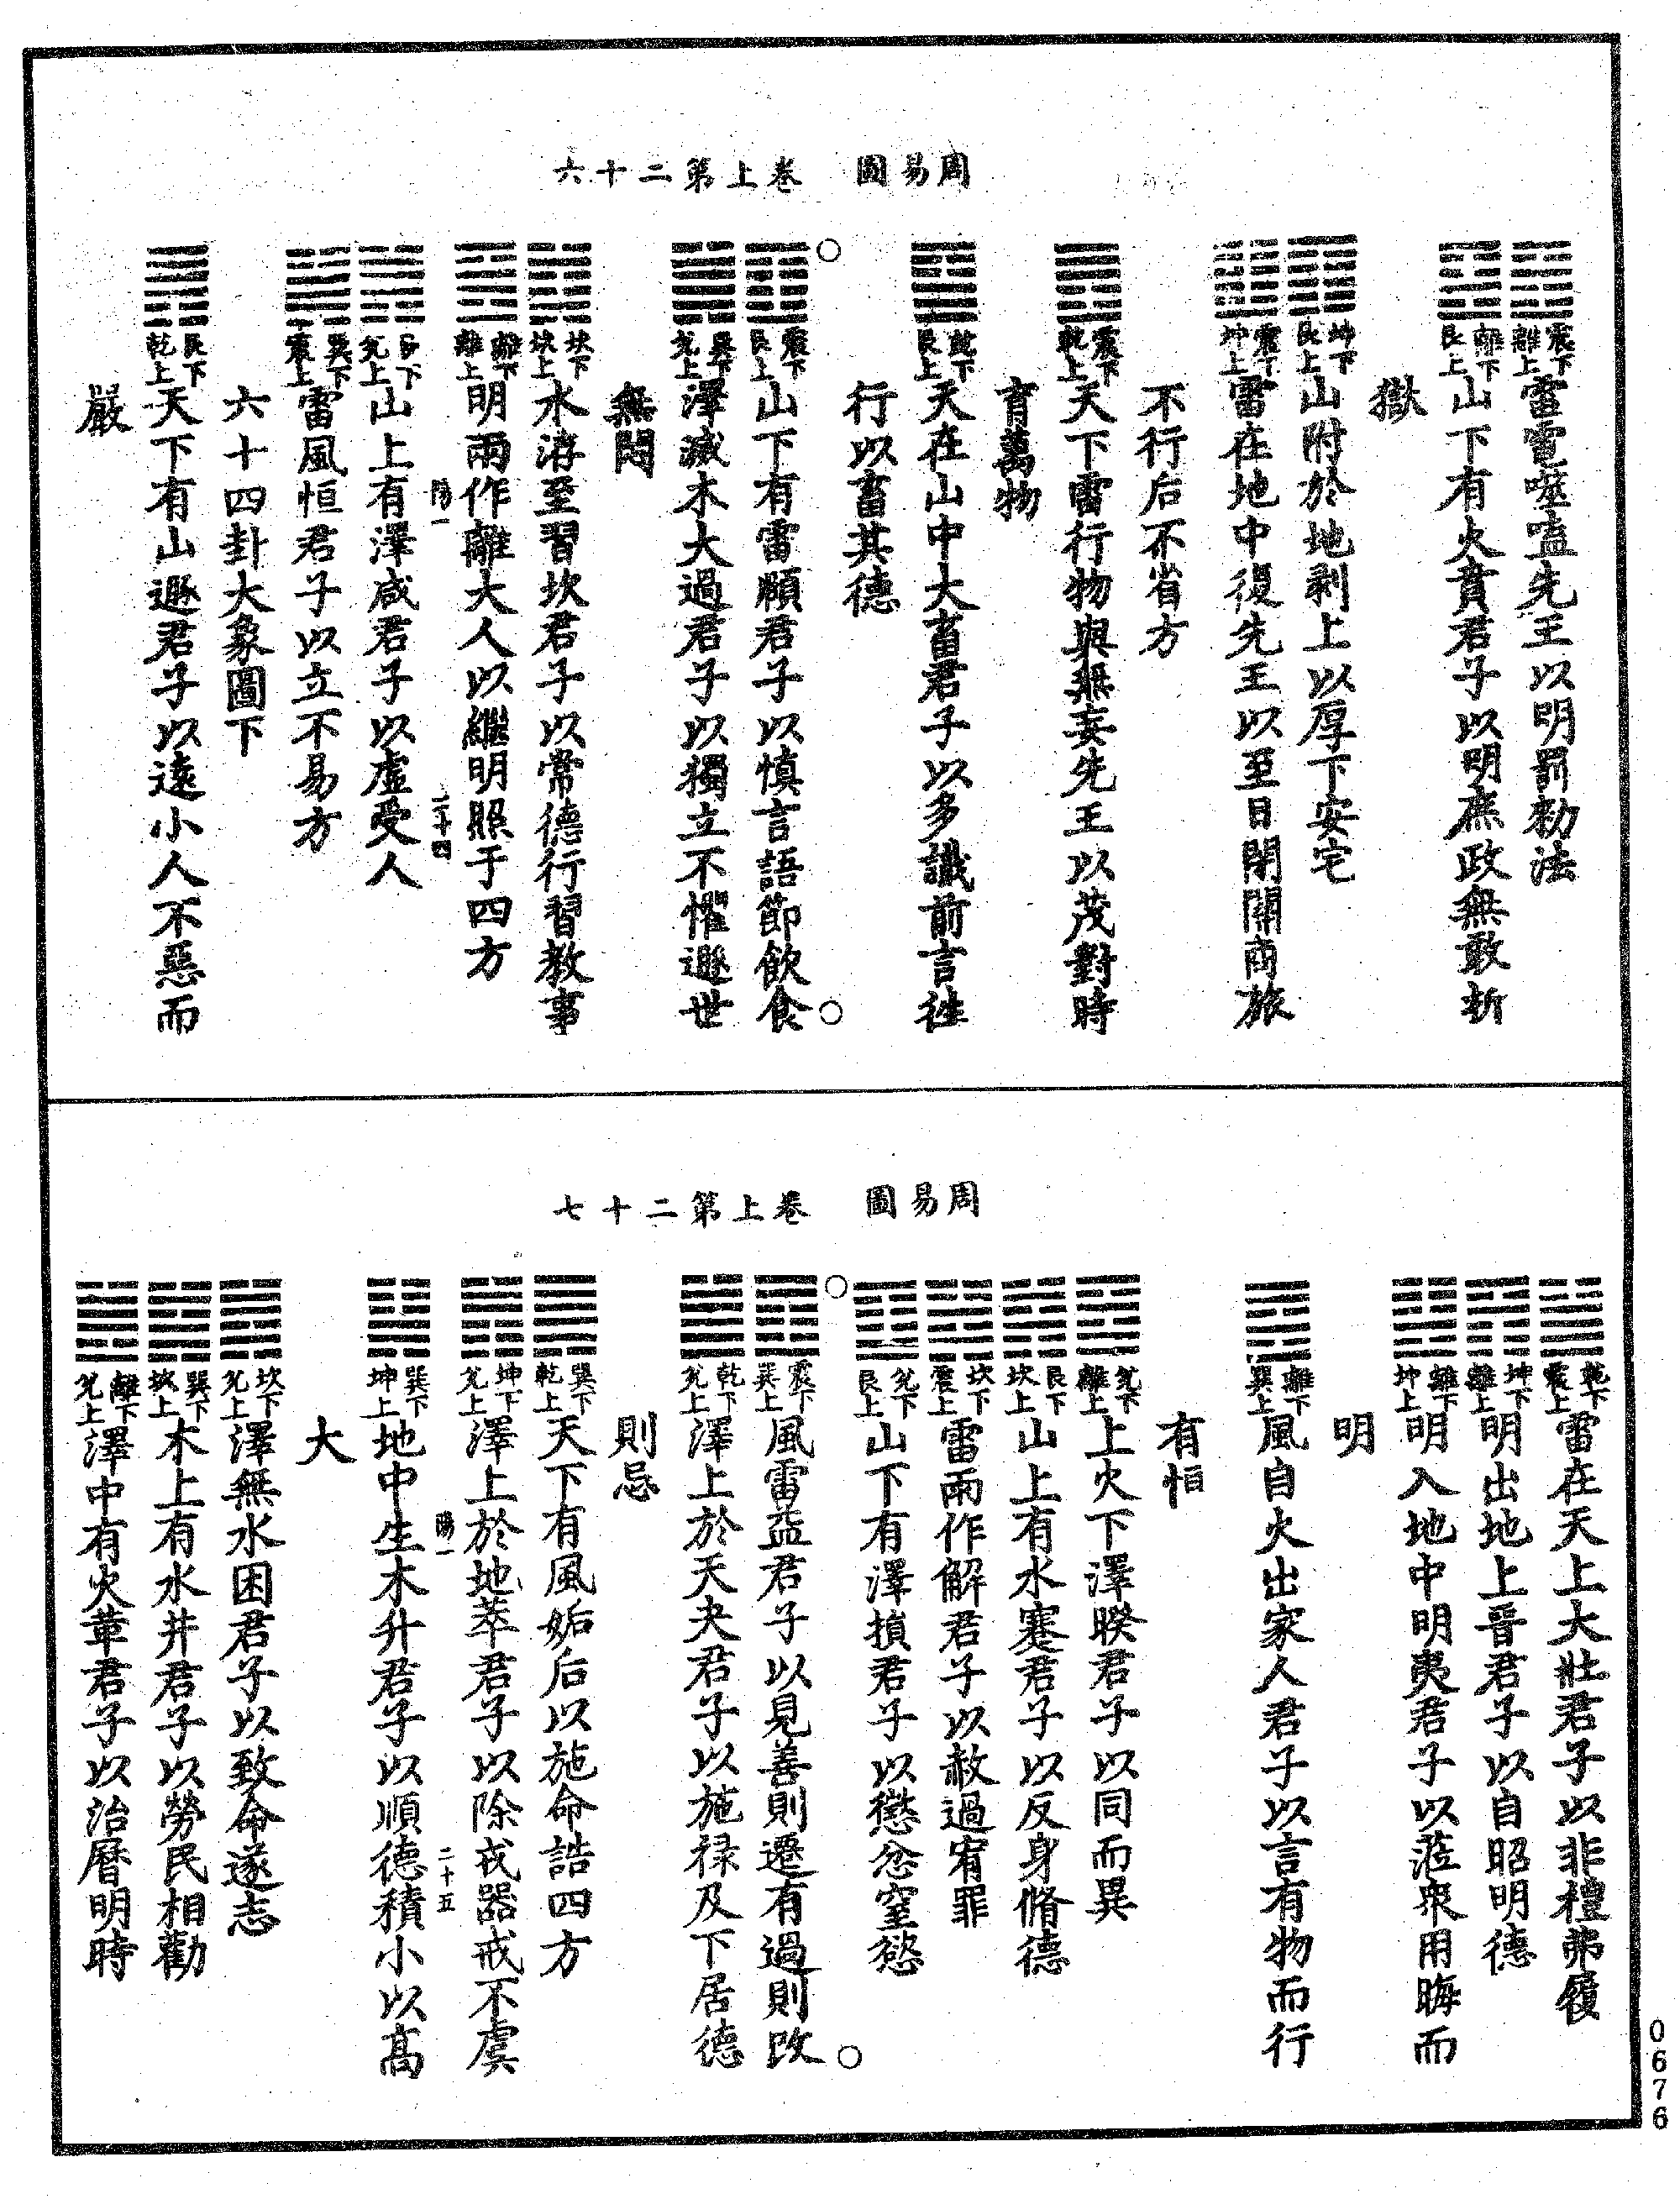 周易圖　卷上第二十六
震下離上　雷電噬嗑先王以明罰勑法
離下艮上　山下有火賁君子以明庶政無敢折
獄
坤下艮上　山附於地剥上以厚下安宅
震下坤上　雷在地中復先王以至日閉關商旅
不行后不省方
震下乾上　天下雷行物與無妄先王以茂對時
育萬物
乾下艮上　天在山中大畜君子以多識前言往
行以畜其德
○　○
震下艮上　山下有雷頤君子以慎言語節飲食
巽下兊上　澤滅木大過君子以獨立不懼遯世
無悶
坎下坎上　水洊至習坎君子以常德行習教事
離下離上　明兩作離大人以繼明照于四方
陽一　二十四
艮下兊上　山上有澤咸君子以虛受人
巽下震上　雷風恒君子以立不易方
六十四卦大象圖下
艮下乾上　天下有山遯君子以遠小人不惡而
嚴
周易圖　卷上第二十七
乾下震上　雷在天上大壯君子以非禮弗履
坤下離上　明出地上晉君子以自昭明德
離下坤上　明入地中明夷君子以蒞衆用晦而
明
離下巽上　風自火出家人君子以言有物而行
有恒
兊下離上　上火下澤睽君子以同而異
艮下坎上　山上有水蹇君子以反身脩德
坎下震上　雷雨作解君子以赦過宥罪
兊下艮上　山下有澤損君子以懲忿窒慾
○　○
震下巽上　風雷益君子以見善則遷有過則改
乾下兊上　澤上於天夬君子以施禄及下居德
則忌
巽下乾上　天下有風姤后以施命誥四方
坤下兊上　澤上於地萃君子以除戎器戒不虞
陽一　二十五
巽下坤上　地中生木升君子以順德積小以髙
大
坎下兊上　澤無水困君子以致命遂志
巽下坎上　木上有水井君子以勞民相勸
離下兊上　澤中有火革君子以治曆明時
0676